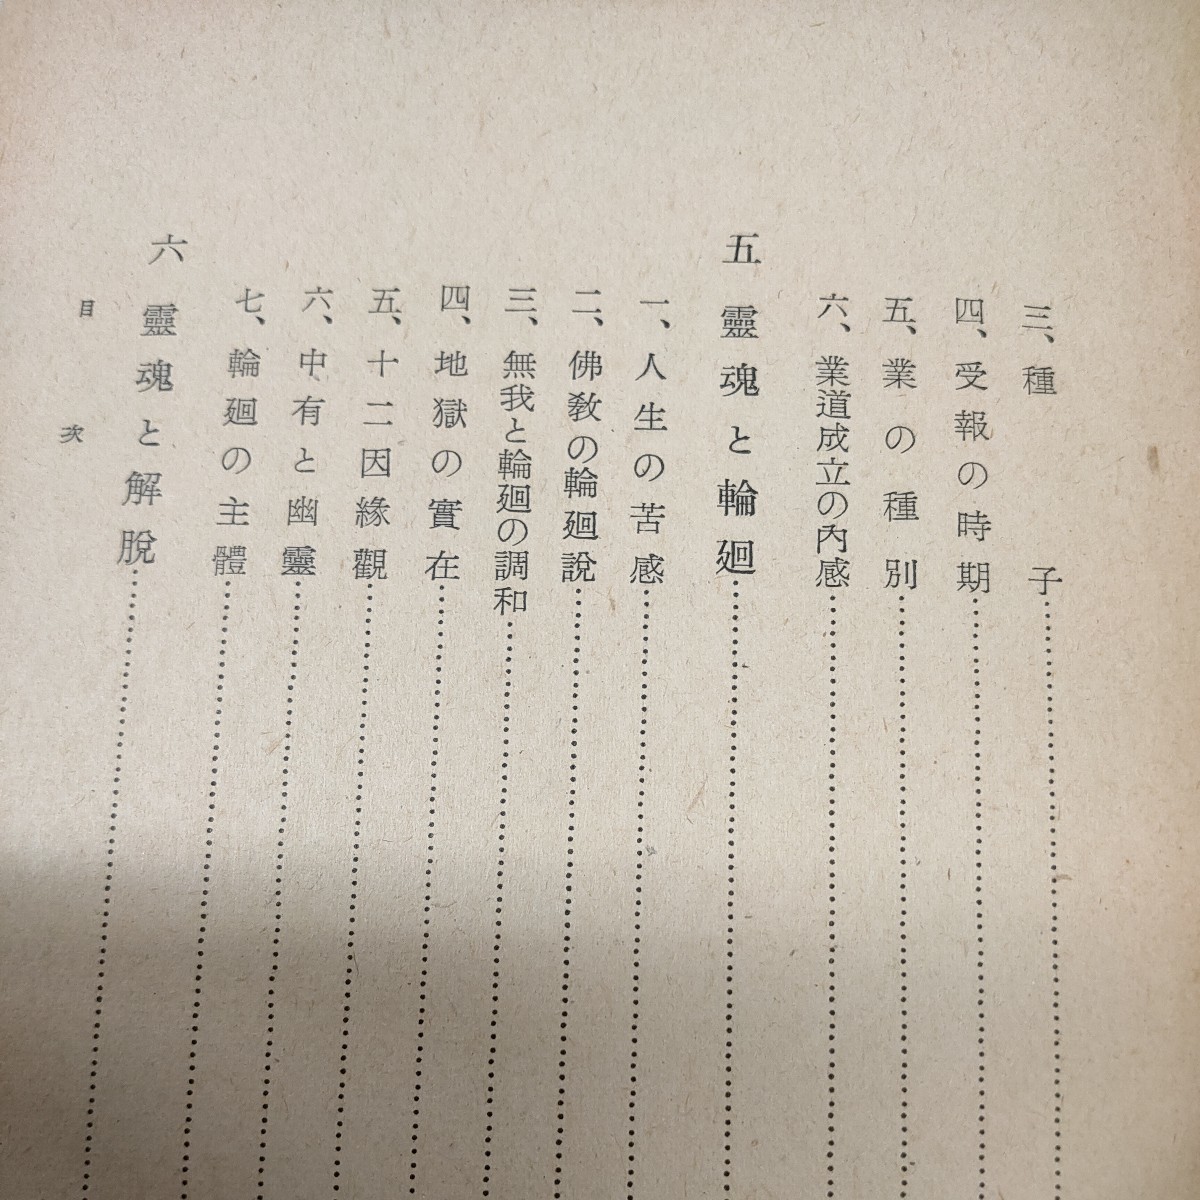 三、種子
四、受報の時期
五、業の種別
六、業道成立の內感
五 靈魂と輪廻
一、人生の苦感
二、佛敎の輪廻說
三、無我と輪廻の調和
四、地獄の實在
五、十二因緣觀
六、中有と幽靈
七、輪廻の主體
六 靈魂と解脫
目次